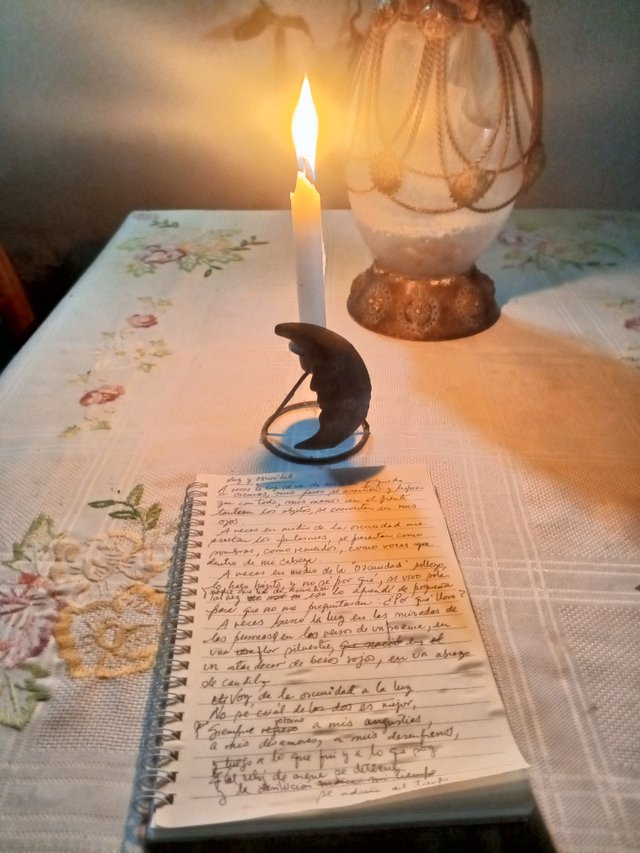 Luz y oscuridad
A veces la luz se va de mi
a oscuras mis pasos se y tropie-
zan con todo, mis manos van al frente
tantean los objetos, se convierten en mis
ojos
A veces en medio de la oscuridad me
asaltan los fantasmas, se presentan como
sombras, como recuerdos, como voces que
dentro de mi cabeza.
A veces en medio de la oscuridad sollozo,
lo hago bajito y no sé por qué, si vivo sola
eso lo aprendí de pequeña
para que no me preguntaran: ¿Por qué lloro?
A veces busco la luz en las miradas de
las personas, en los versos de un poema, en
una flor silvestre, que nació en el
un atardecer de besos rojos, en un abrazo
de candil,
Voy de la oscuridad a la luz
No sé cuál de las dos es mejor,
Siempre retorno a mis angustias,
a mis desamores, a mis desenfrenos,
y luego a lo que fui y a lo que soy
el reloj de arena se detiene
y la
se adueña del tiempo